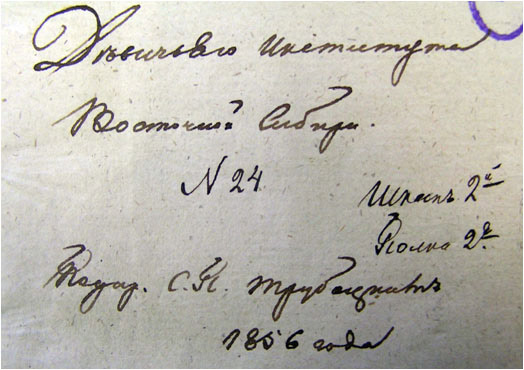 Дѣвичьяго Института
Восточной Сибири.
N 24
Шкапъ 2й
Полка 2я
Подар. С. П. Трубецкимъ
1856 года